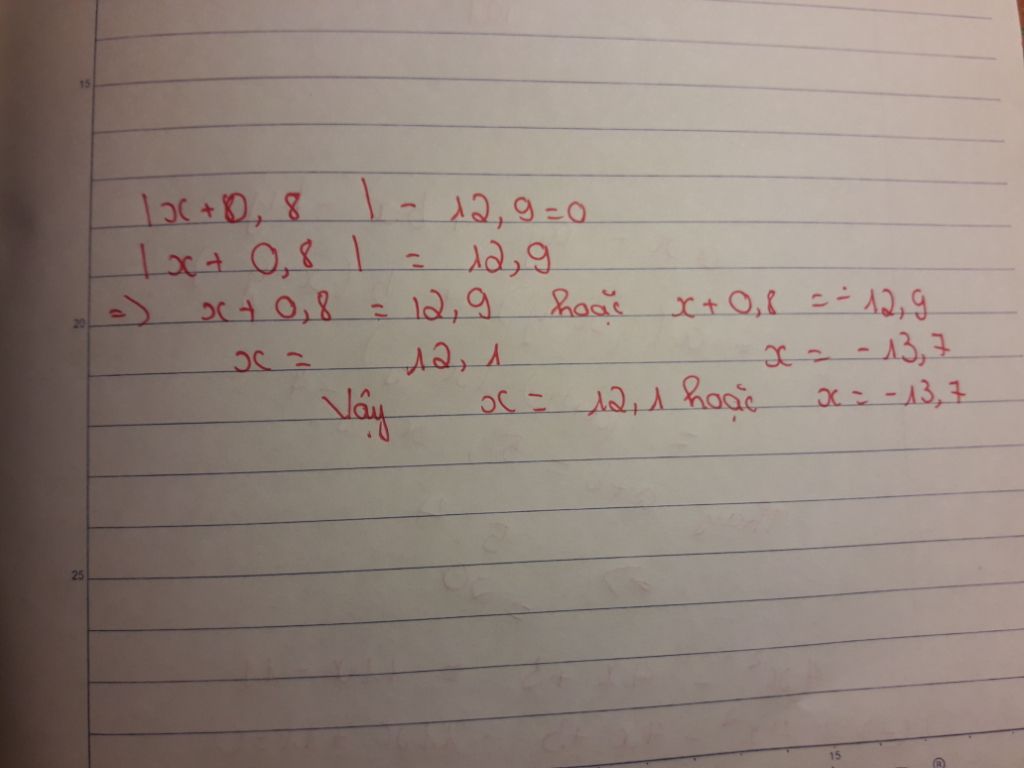 15
|x+0,8 | - 12,9=0
|x+ 0,8 | = 12,9
=> x+ 0,8 = 12,9 hoặc x+0,8 =- 12,9
20
x = 12,1 x = -13,7
Vậy x = 12,1 hoặc x = -13,7
25
15
®